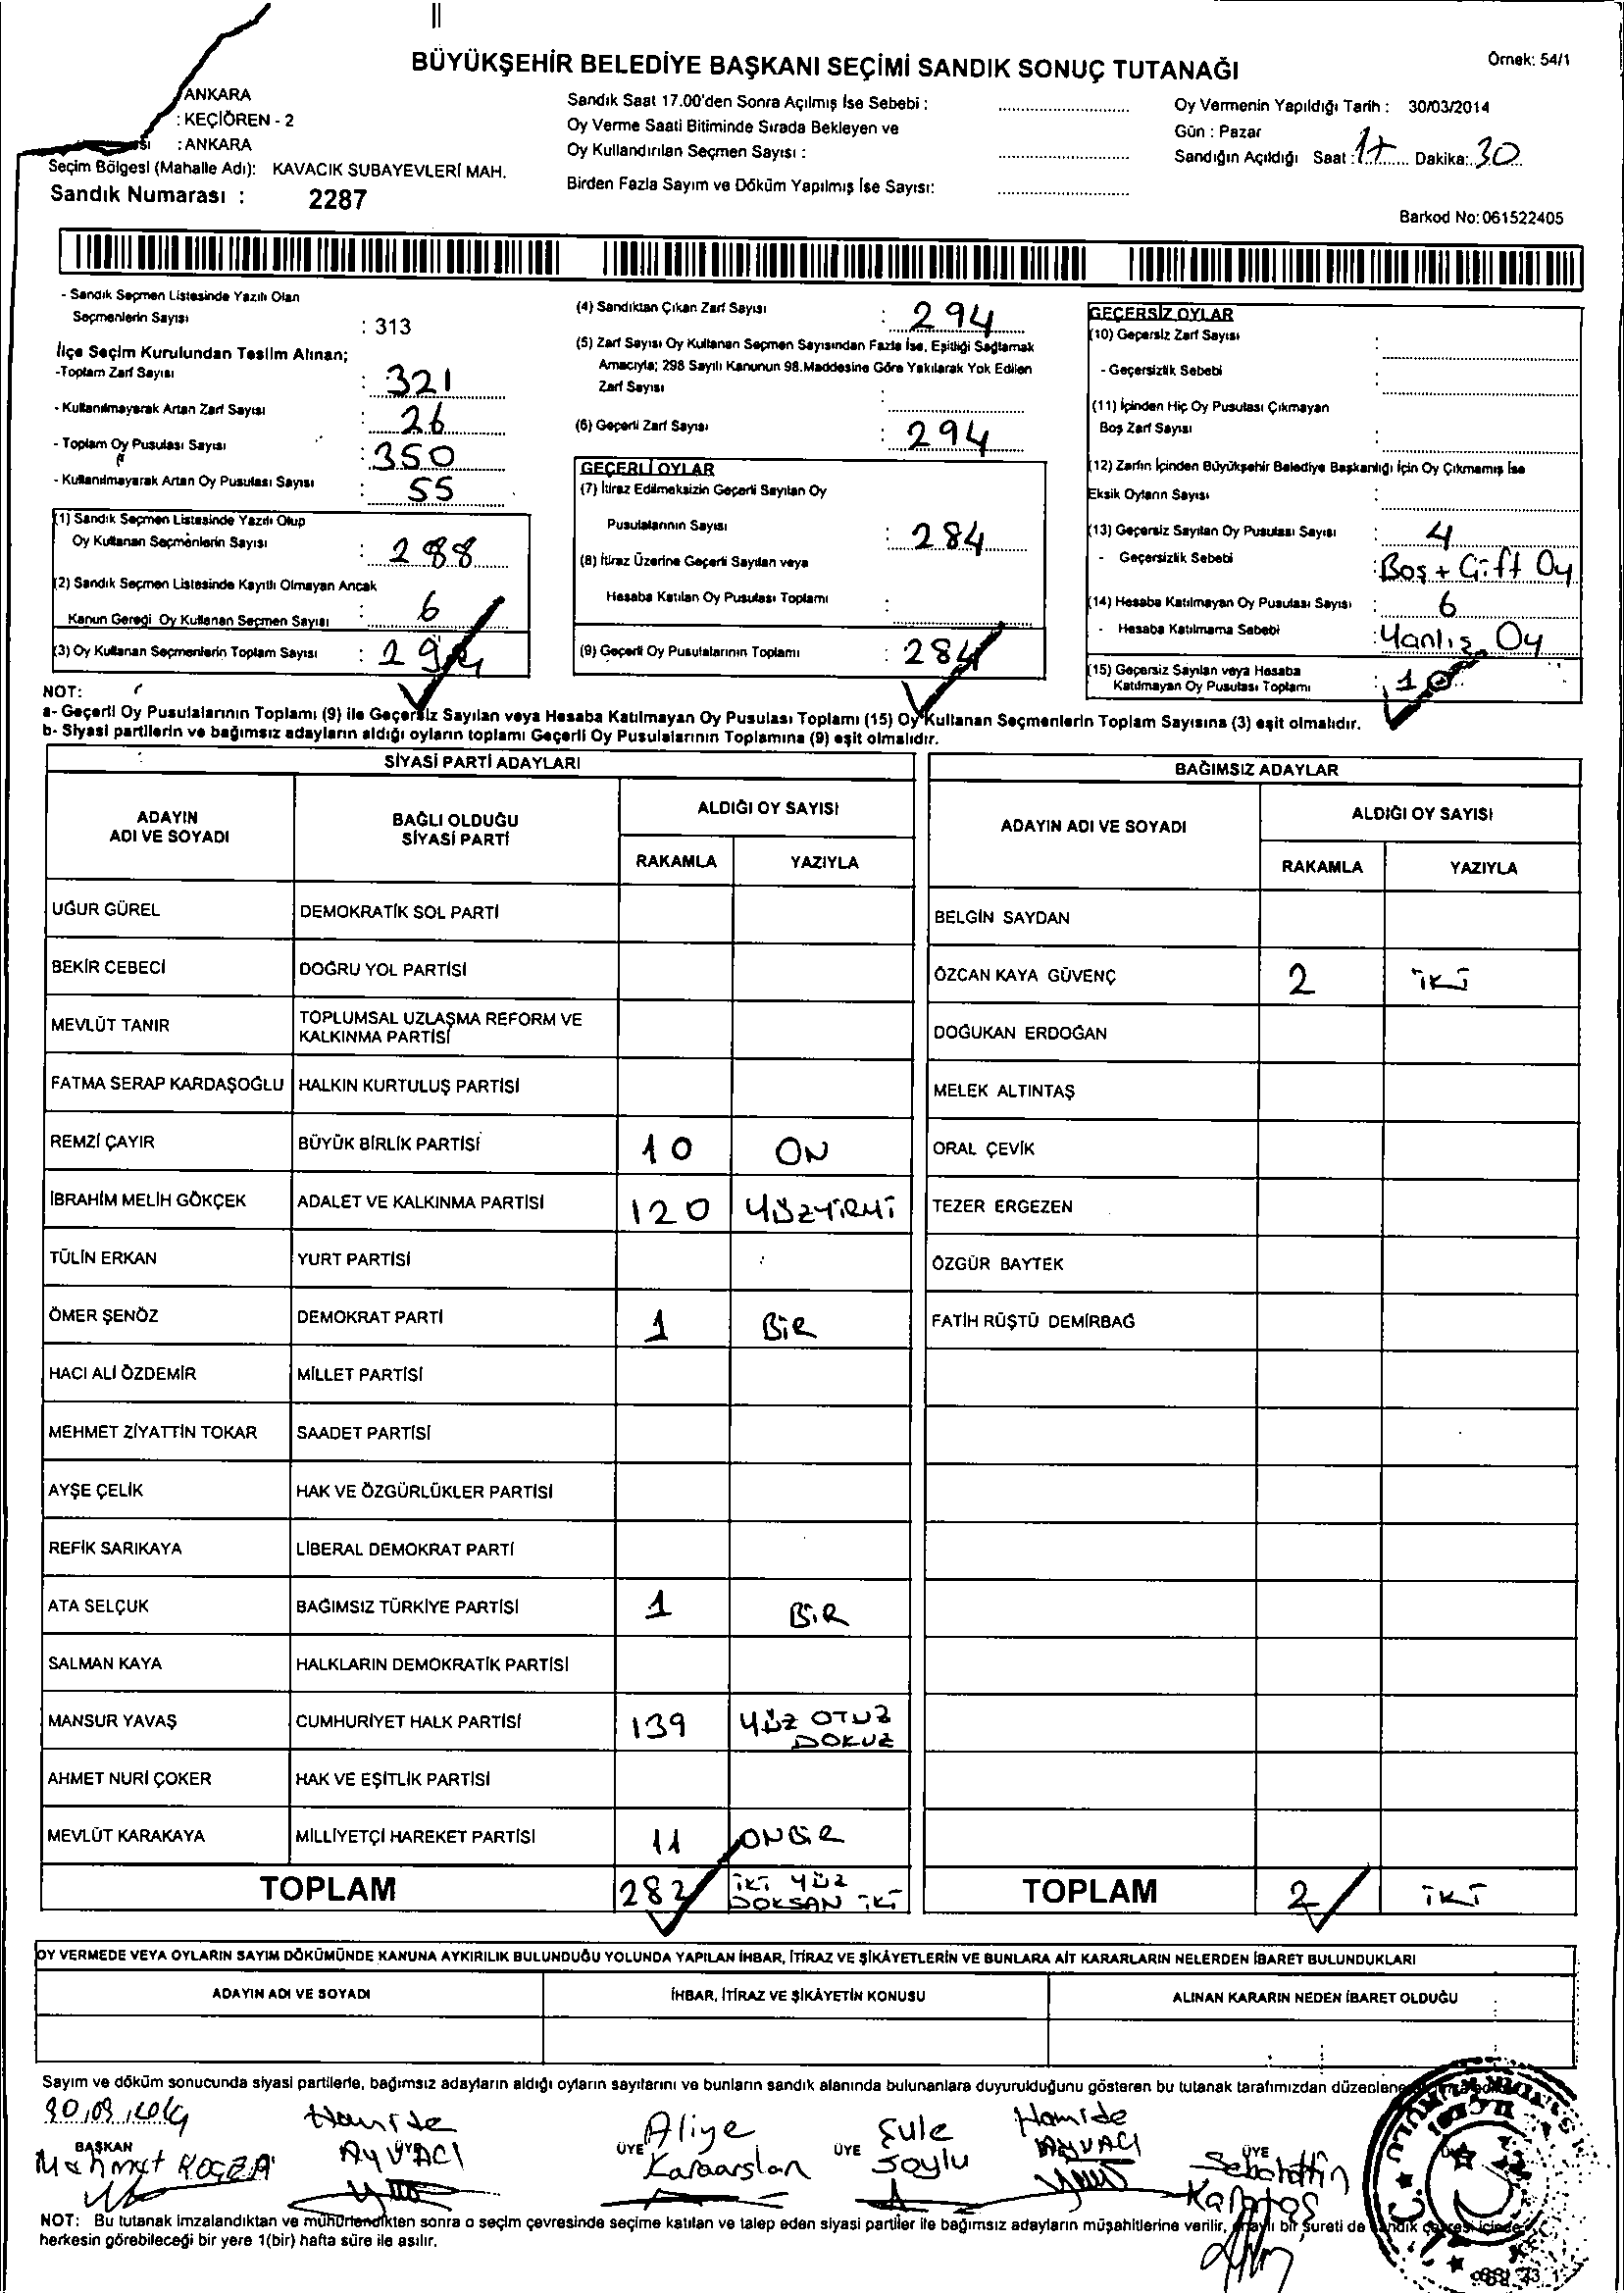 BÜYÜKŞEHİR BELEDİYE BAŞKANI SEÇİMİ SANDIK SONUÇ TUTANAĞI
Örnek: 54/1
ANKARA
: KEÇİÖREN - 2
: ANKARA
Seçim Bölgesi (Mahalle Adı): KAVACIK SUBAYEVLERİ MAH.
Sandık Numarası : 2287
Sandık Saat 17.00'den Sonra Açılmış İse Sebebi :
Oy Verme Saati Bitiminde Sırada Bekleyen ve
Oy Kullandırılan Seçmen Sayısı :
Birden Fazla Sayım ve Döküm Yapılmış İse Sayısı:
Oy Vermenin Yapıldığı Tarih : 30/03/2014
Gün : Pazar
Sandığın Açıldığı Saat : 17 Dakika: 30
Barkod No: 061522405
- Sandık Seçmen Listesinde Yazılı Olan
Seçmenlerin Sayısı : 313
İlçe Seçim Kurulundan Teslim Alınan;
-Toplam Zarf Sayısı : 321
- Kullanılmayarak Artan Zarf Sayısı : 26
- Toplam Oy Pusulası Sayısı : 350
- Kullanılmayarak Artan Oy Pusulası Sayısı : 55
(1) Sandık Seçmen Listesinde Yazılı Olup
Oy Kullanan Seçmenlerin Sayısı : 288
(2) Sandık Seçmen Listesinde Kayıtlı Olmayan Ancak
Kanun Gereği Oy Kullanan Seçmen Sayısı : 6
(3) Oy Kullanan Seçmenlerin Toplam Sayısı : 294
(4) Sandıktan Çıkan Zarf Sayısı : 294
(5) Zarf Sayısı Oy Kullanan Seçmen Sayısından Fazla İse, Eşitliği Sağlamak
Amacıyla; 298 Sayılı Kanunun 98.Maddesine Göre Yakılarak Yok Edilen
Zarf Sayısı :
(6) Geçerli Zarf Sayısı : 294
GEÇERLİ OYLAR
(7) İtiraz Edilmeksizin Geçerli Sayılan Oy
Pusulalarının Sayısı : 284
(8) İtiraz Üzerine Geçerli Sayılan veya
Hesaba Katılan Oy Pusulası Toplamı :
(9) Geçerli Oy Pusulalarının Toplamı : 284
GEÇERSİZ OYLAR
(10) Geçersiz Zarf Sayısı :
- Geçersizlik Sebebi :
(11) İçinden Hiç Oy Pusulası Çıkmayan
Boş Zarf Sayısı :
(12) Zarfın İçinden Büyükşehir Belediye Başkanlığı İçin Oy Çıkmamış İse
Eksik Oyların Sayısı :
(13) Geçersiz Sayılan Oy Pusulası Sayısı : 4
- Geçersizlik Sebebi : Boş + Çift Oy
(14) Hesaba Katılmayan Oy Pusulası Sayısı : 6
- Hesaba Katılmama Sebebi : Yanlış Oy
(15) Geçersiz Sayılan veya Hesaba
Katılmayan Oy Pusulası Toplamı : 10
NOT:
a- Geçerli Oy Pusulalarının Toplamı (9) ile Geçersiz Sayılan veya Hesaba Katılmayan Oy Pusulası Toplamı (15) Oy Kullanan Seçmenlerin Toplam Sayısına (3) eşit olmalıdır.
b- Siyasi partilerin ve bağımsız adayların aldığı oyların toplamı Geçerli Oy Pusulalarının Toplamına (9) eşit olmalıdır.
SİYASİ PARTİ ADAYLARI
ADAYIN ADI VE SOYADI BAĞLI OLDUĞU SİYASİ PARTİ ALDIĞI OY SAYISI
RAKAMLA YAZIYLA
UĞUR GÜREL DEMOKRATİK SOL PARTİ
BEKİR CEBECİ DOĞRU YOL PARTİSİ
MEVLÜT TANIR TOPLUMSAL UZLAŞMA REFORM VE KALKINMA PARTİSİ
FATMA SERAP KARDAŞOĞLU HALKIN KURTULUŞ PARTİSİ
REMZİ ÇAYIR BÜYÜK BİRLİK PARTİSİ 10 ON
İBRAHİM MELİH GÖKÇEK ADALET VE KALKINMA PARTİSİ 120 YÜZYİRMİ
TÜLİN ERKAN YURT PARTİSİ
ÖMER ŞENÖZ DEMOKRAT PARTİ 1 BİR
HACI ALİ ÖZDEMİR MİLLET PARTİSİ
MEHMET ZİYATTİN TOKAR SAADET PARTİSİ
AYŞE ÇELİK HAK VE ÖZGÜRLÜKLER PARTİSİ
REFİK SARIKAYA LİBERAL DEMOKRAT PARTİ
ATA SELÇUK BAĞIMSIZ TÜRKİYE PARTİSİ 1 BİR
SALMAN KAYA HALKLARIN DEMOKRATİK PARTİSİ
MANSUR YAVAŞ CUMHURİYET HALK PARTİSİ 139 YÜZ OTUZ DOKUZ
AHMET NURİ ÇOKER HAK VE EŞİTLİK PARTİSİ
MEVLÜT KARAKAYA MİLLİYETÇİ HAREKET PARTİSİ 11 ONBİR
TOPLAM 282 İKİ YÜZ DOKSAN İKİ
BAĞIMSIZ ADAYLAR
ADAYIN ADI VE SOYADI ALDIĞI OY SAYISI
RAKAMLA YAZIYLA
BELGİN SAYDAN
ÖZCAN KAYA GÜVENÇ 2 İKİ
DOĞUKAN ERDOĞAN
MELEK ALTINTAŞ
ORAL ÇEVİK
TEZER ERGEZEN
ÖZGÜR BAYTEK
FATİH RÜŞTÜ DEMİRBAĞ
TOPLAM 2 İKİ
OY VERMEDE VEYA OYLARIN SAYIM DÖKÜMÜNDE KANUNA AYKIRILIK BULUNDUĞU YOLUNDA YAPILAN İHBAR, İTİRAZ VE ŞİKÂYETLERİN VE BUNLARA AİT KARARLARIN NELERDEN İBARET BULUNDUKLARI
ADAYIN ADI VE SOYADI İHBAR, İTİRAZ VE ŞİKÂYETİN KONUSU ALINAN KARARIN NEDEN İBARET OLDUĞU
Sayım ve döküm sonucunda siyasi partilerle, bağımsız adayların aldığı oyların sayılarını ve bunların sandık alanında bulunanlara duyurulduğunu gösteren bu tutanak tarafımızdan
BAŞKAN ÜYE ÜYE ÜYE ÜYE
Hamide AYVACI
Aliye Karaarslan
Şule Soylu
Hamide AYVACI
NOT: Bu tutanak imzalandıktan ve mühürlendikten sonra o seçim çevresinde seçime katılan ve talep eden siyasi partiler ile bağımsız adayların müşahitlerine verilir, onaylı bir sureti de sandık çevresi içinde
herkesin görebileceği bir yere 1(bir) hafta süre ile asılır.